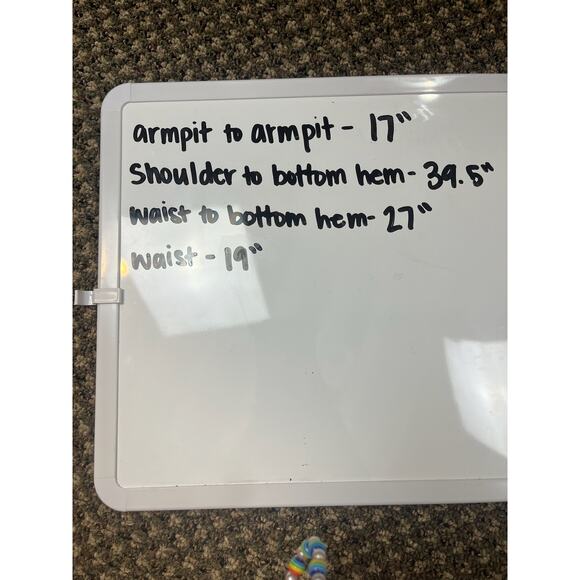 armpit to armpit - 17"
Shoulder to bottom hem - 39.5"
waist to bottom hem - 27"
waist - 19"